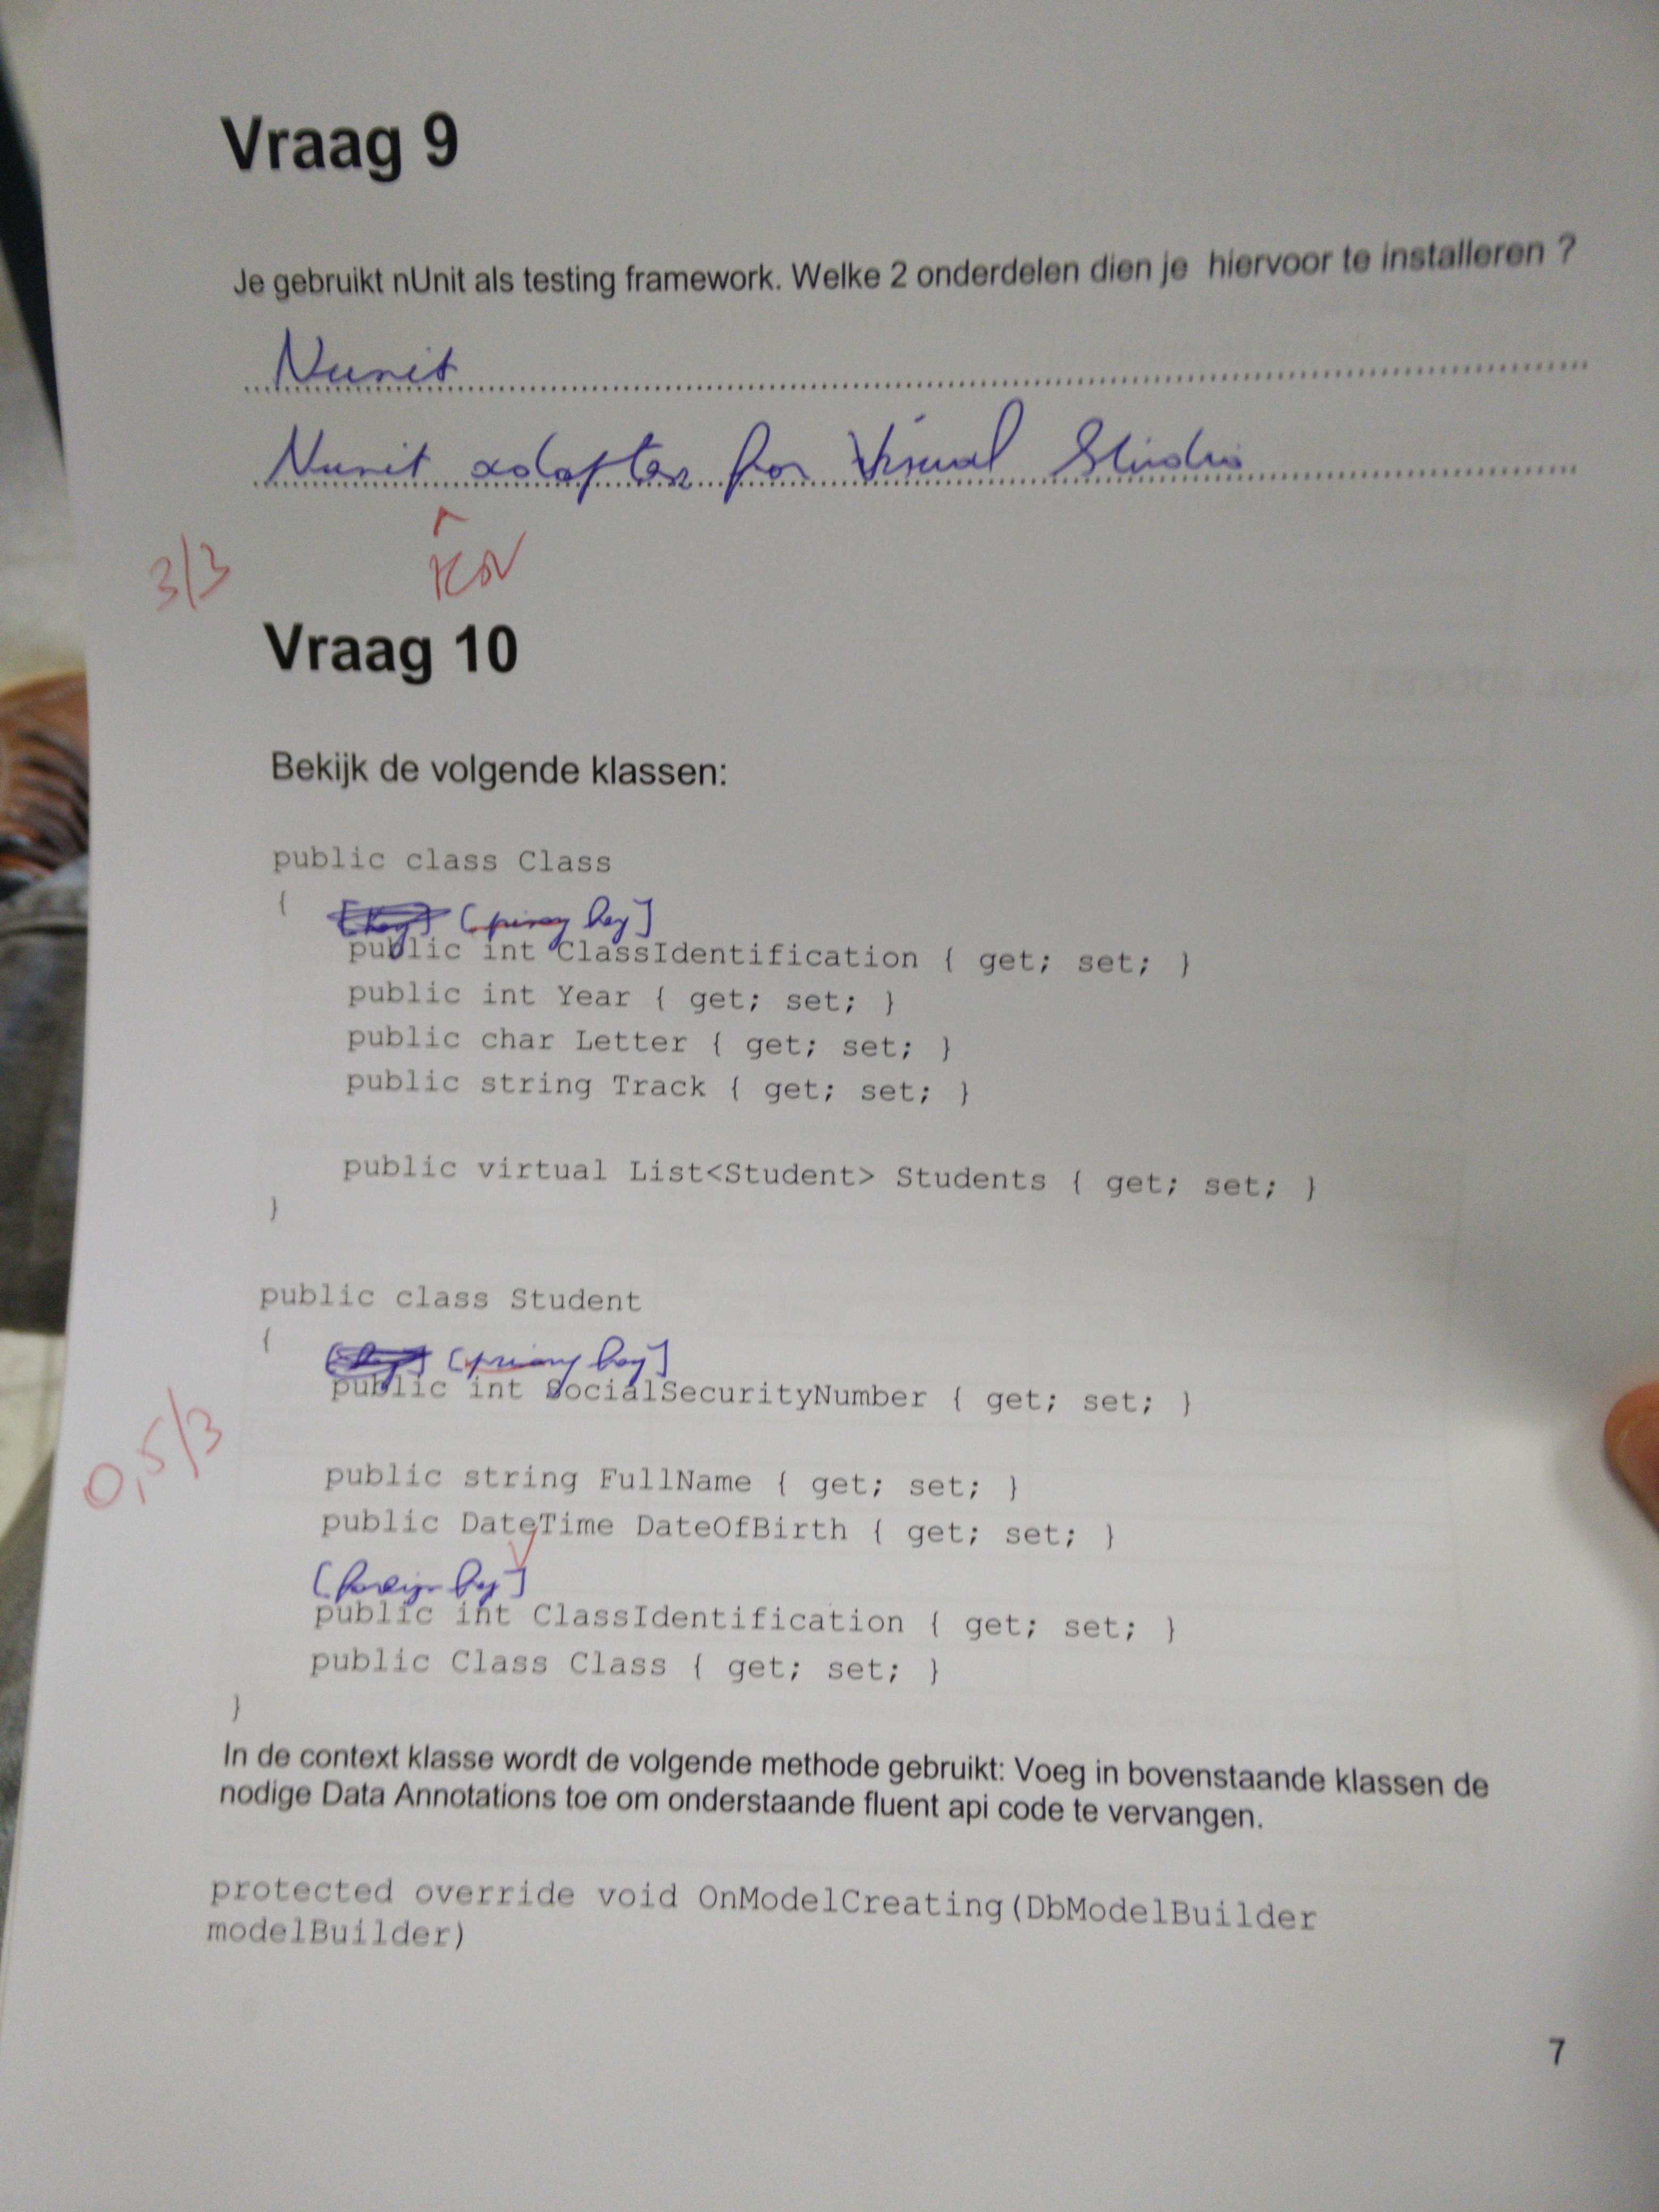 Vraag 9
Je gebruikt nUnit als testing framework. Welke 2 onderdelen dien je hiervoor te installeren ?
Nunit
Nunit adapter for Visual Studio
3/3
Vraag 10
Bekijk de volgende klassen:
public class Class
{
[Key] [primary key]
public int ClassIdentification { get; set; }
public int Year { get; set; }
public char Letter { get; set; }
public string Track { get; set; }
public virtual List<Student> Students { get; set; }
}
public class Student
{
[Key] [primary key]
public int SocialSecurityNumber { get; set; }
0,5/3
public string FullName { get; set; }
public DateTime DateOfBirth { get; set; }
[foreign key]
public int ClassIdentification { get; set; }
public Class Class { get; set; }
}
In de context klasse wordt de volgende methode gebruikt: Voeg in bovenstaande klassen de
nodige Data Annotations toe om onderstaande fluent api code te vervangen.
protected override void OnModelCreating(DbModelBuilder
modelBuilder)
7